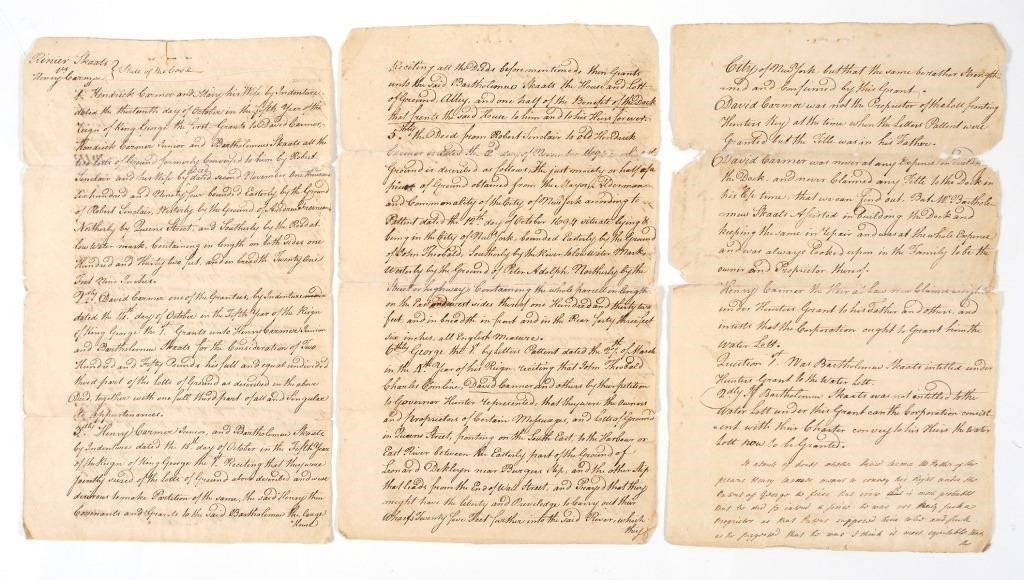 Reinier Skaats
vs
Henry Carmer } State of the Case
1. Hendrick Carmer and Mary his Wife by Indenture
dated the thirteenth day of October in the fifth Year of the
Reign of King George the First Grants to David Carmer,
Hendrick Carmer Junior and Bartholomew Skaats all the
Lotts of Ground formerly Conveyed to him by Robert
Sinclair and his Wife by dated second November One thousand
Six hundred and Ninety four bounded Easterly by the Ground
of Robert Sinclair, Westerly by the Ground of Andrew
Northerly by Queens Street, and Southerly by the River at
low Water mark. Containing in length on both Sides one
Hundred and thirty two feet, and in breadth Twenty One
feet Nine Inches.
2dly. David Carmer one of the Grantees, by Indenture
dated the 14th. day of October in the fifth Year of the Reign
of King George the 1. Grants unto Henry Carmer Junior
and Bartholomew Skaats for the Consideration of Two
Hundred and Fifty Pounds his full and equal undivided
third part of the Lotts of Ground as described in the above
Deed together with one full third part of all and Singular
& appurtenances.
3dly. Henry Carmer Junior, and Bartholomew Skaats
by Indenture dated the 15th. day of October in the Fifth Year
of the Reign of King George the 1. Reciting that they were
jointly seized of the Lotts of Ground above described and were
desirous to make Partition of the same, the said Henry then
Covenants and Grants to the Said Bartholomew the large
House
Reciting all the Deeds before mentioned then Grants
unto the Said Bartholomew Skaats the House and Lott
of Ground Alley, and one half of the Benefit of the Dock
that fronts the Said House to him and to his Heirs forever.
5thly the Deed from Robert Sinclair to old Hendrick
Carmer dated the 2d day of November 1694
Ground is described as follows the just moiety or half of a
piece of Ground obtained from the Mayor Alderman
and Commonality of the City of New York according to
Pattent dated the 12th. day of October 1694 situate lying &
being in the City of New York, bounded Easterly by the Ground
of John Theobald, Southerly by the River to low Water Mark,
Westerly by the Ground of Peter Adolph, Northerly by the
Street or highway; Containing the whole parcell in length
in the East and west sides thereof one Hundred and thirty two
feet, and in breadth in front and in the Rear forty three feet
Six inches, all English Measure.
6thly George the 1. by Letters Pattent dated the 27th. of March
in the 4th. Year of his Reign, reciting that John Theobald
Charles Comline, David Carmer and others by their petition
to Governor Hunter represented, that they were the Owners
and Proprietors of Certain Messuages, and Lotts of Ground
in Queens Street, fronting on the South East, to the Harbour or
East River between the Easterly part of the Ground of
Leonard Dekleyn near Burgers Slip, and the other Slip
that leads from the End of Wall Street, and Prayed that they
might have the Liberty and Priviledge to Carry out their
Wharfs Twenty five Feet further into the Said River, which
they
City of New York but that the same be rather Strength-
ened and Confirmed by this Grant.
David Carmer was not the Proprietor of the Lott fronting
Hunters Key at the time when the Letters Pattent were
Granted but the Title was in his Father.
David Carmer was never at any Expence in building
the Dock, and never Claimed any Title to the Dock in
his life time, that we can find out. But Mr. Bartholo-
mew Skaats Assisted in building the Dock and
keeping the same in repair and was at the whole Expence
and was always looked upon in the Family to be the
owner and Proprietor thereof.
Henry Carmer the Heir at law now Claims
under Hunters Grant to his Father and others, and
insists that the Corporation ought to Grant him the
Water Lott.
Question 1. Was Bartholomew Skaats intitled under
Hunters Grant to the Water Lott.
2dly If Bartholomew Skaats was not intitled to the
Water Lott under this Grant can the Corporation consist-
ent with their Charter convey to his Heirs the Water
Lott now to be Granted.
It admits of doubt whether David Carmer the Father of the
present Henry Carmer meant to convey his Right under the
Patent of George the first, but since it is most probable
that he did so intend &
proprietor as that Patent supposed him
as he pursued that he was I think it most equitable that
the